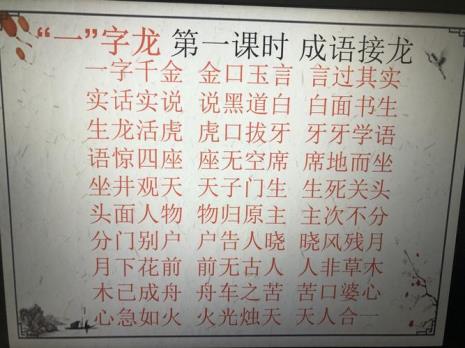 “一”字龙 第一课时 成语接龙
一字千金 金口玉言 言过其实
实话实说 说黑道白 白面书生
生龙活虎 虎口拔牙 牙牙学语
语惊四座 座无空席 席地而坐
坐井观天 天子门生 生死关头
头面人物 物归原主 主次不分
分门别户 户告人晓 晓风残月
月下花前 前无古人 人非草木
木已成舟 舟车之苦 苦口婆心
心急如火 火光烛天 天人合一